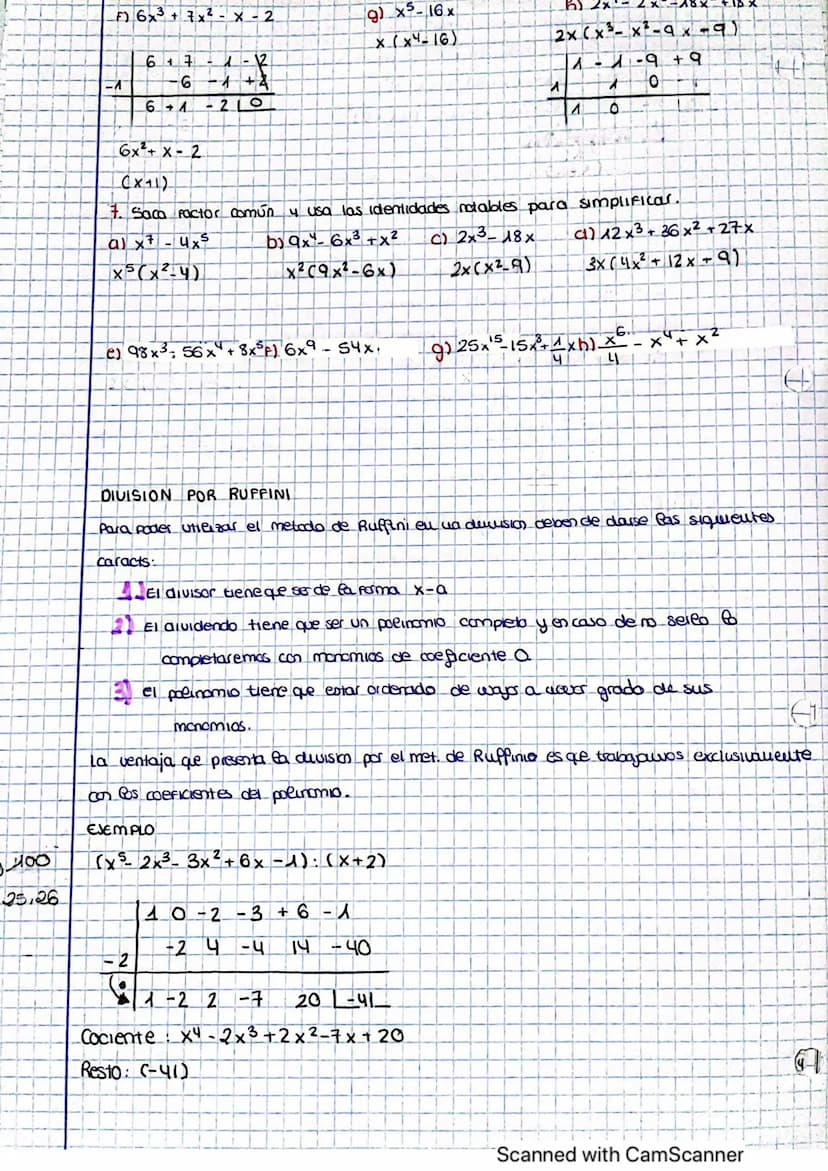 F) 6x³ + 7x² - x - 2
g) x⁵ - 16x
h) 2x⁴ - 2x³ - 18x² + 18x
x (x⁴ - 16)
2x (x³ - x² - 9x - 9)
6 + 7 - 1 - 2
-6 -1 + 2
-1
6 + 1 - 2 0
1 - 1 - 9 + 9
1 0 -
1
1 0
6x² + x - 2
(x+1)
7. Saca factor común y usa las identidades notables para simplificar.
a) x⁷ - 4x⁵ b) 9x⁴ - 6x³ + x² c) 2x³ - 18x d) 12x³ + 36x² + 27x
x⁵(x² - 4) x²(9x² - 6x) 2x(x² - 9) 3x(4x² + 12x + 9)
e) 98x³ - 56x⁴ + 8x⁵ F) 6x⁹ - 54x. g) 25x¹⁵ - 15x⁸ + 1/4 x h) x⁶/4 - x⁴ + x²
DIVISION POR RUFFINI
Para poder utilizar el metodo de Ruffini en una division deben de darse las siguientes
caracts:
1) El divisor tiene que ser de la forma x-a
2) El dividendo tiene que ser un polinomio completo y en caso de no serlo lo
completaremos con monomios de coeficiente 0
3) el polinomio tiene que estar ordenado de mayor a menor grado de sus
monomios.
La ventaja qe presenta la division por el met. de Ruffinio es qe trabajamos exclusivamente
con los coeficientes del polinomio.
EJEMPLO
100
(x⁵ - 2x³ - 3x² + 6x - 1) : (x+2)
25,26
1 0 -2 -3 + 6 -1
-2 4 -4 14 -40
-2
1 -2 2 -7 20 -41
Cociente : x⁴ - 2x³ + 2x² - 7x + 20
Resto: (-41)
Scanned with CamScanner